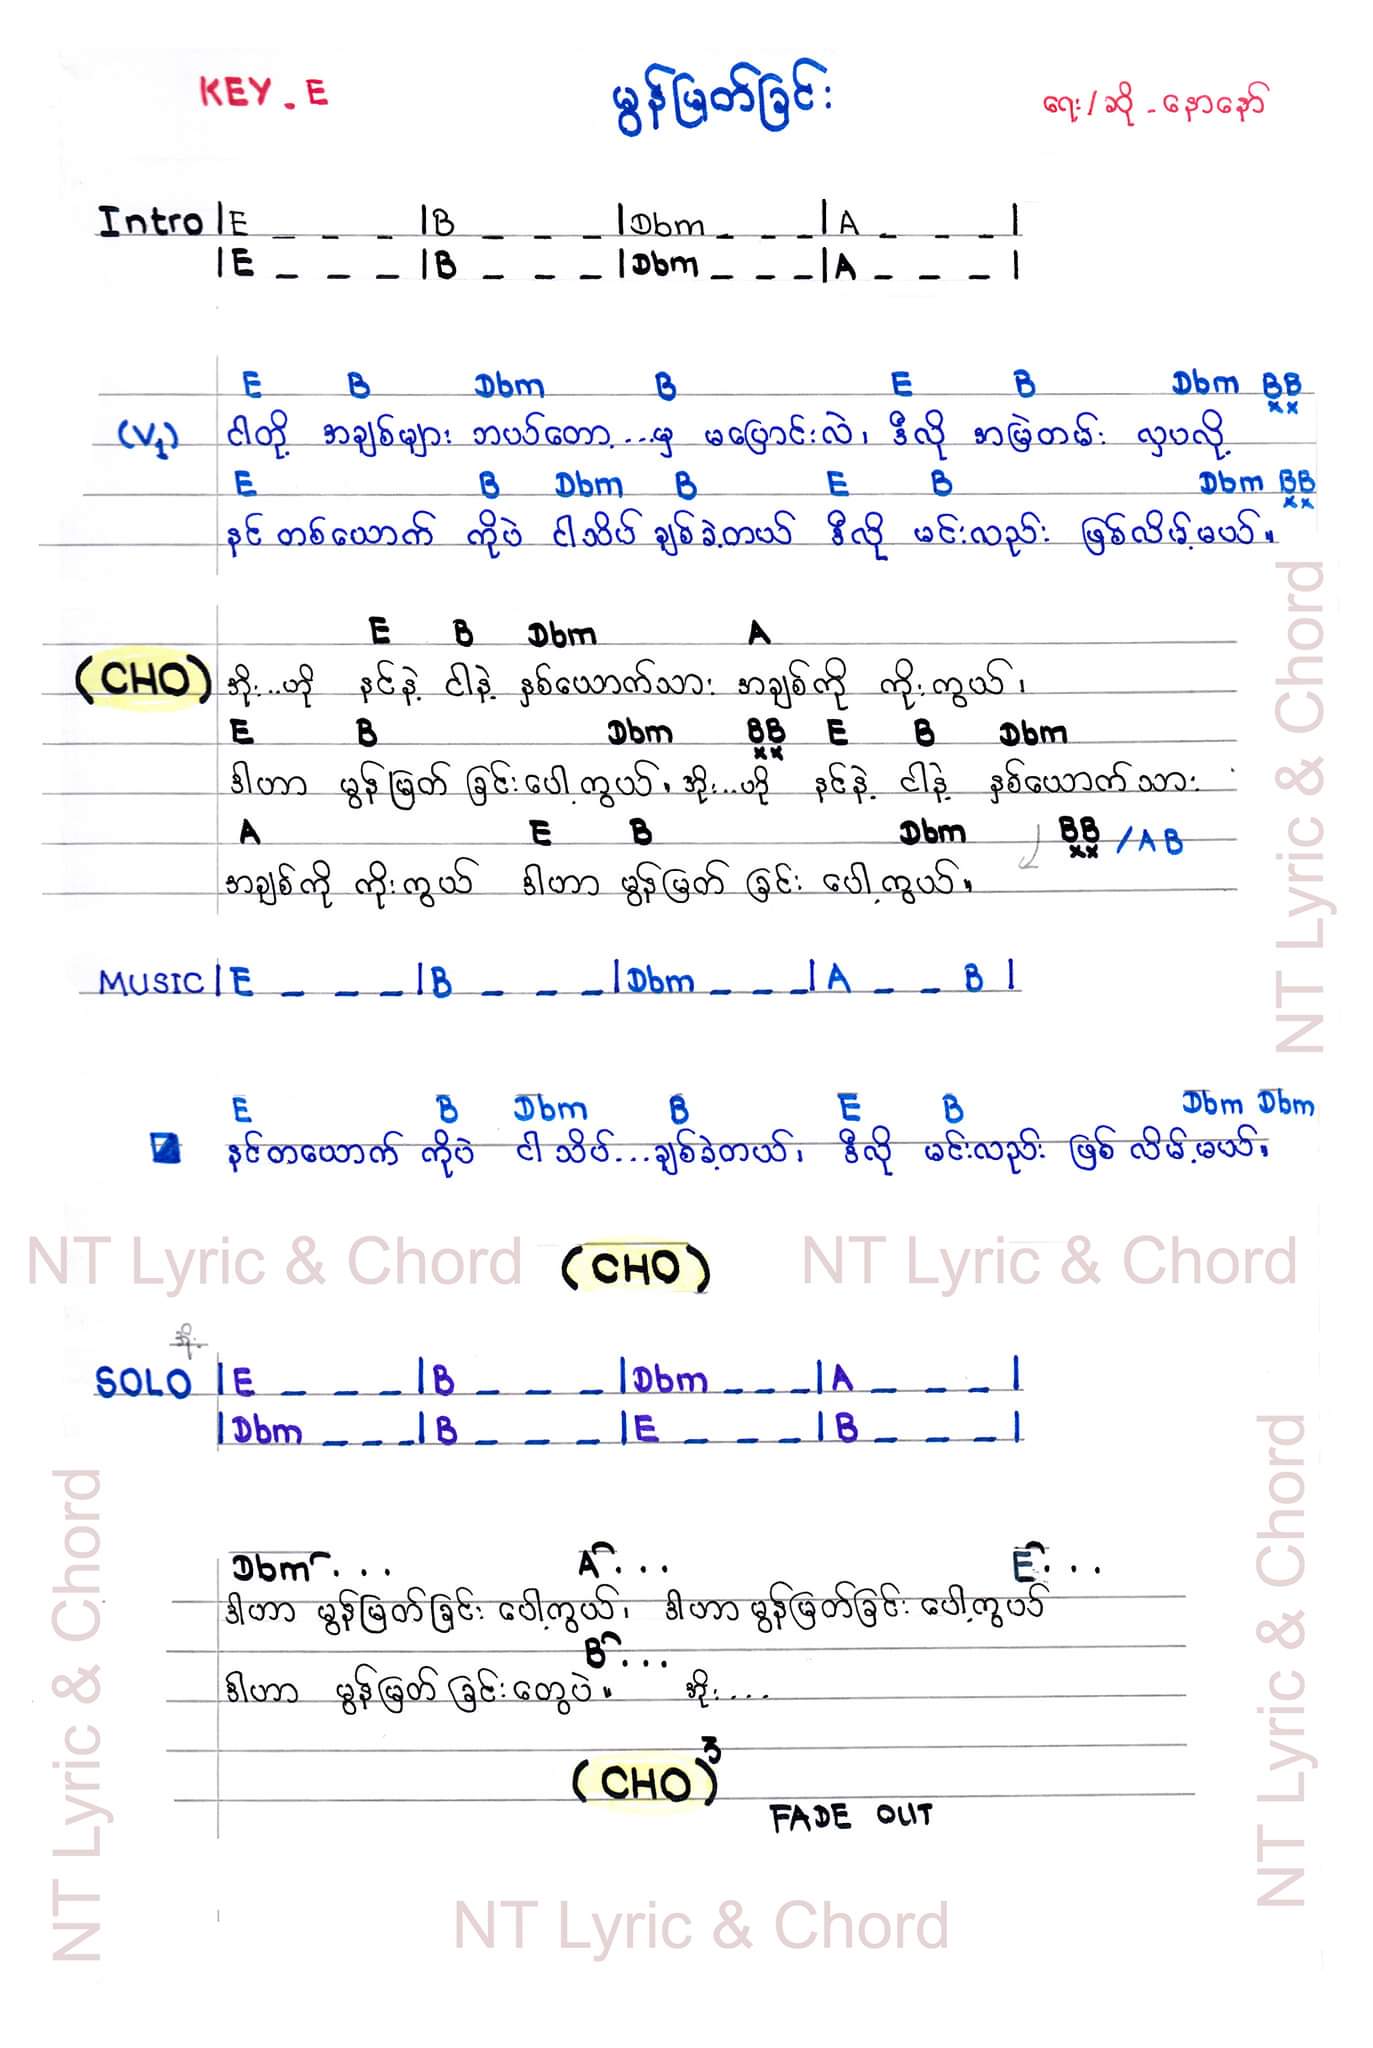 KEY . E
မွန်မြတ်ခြင်း
ရေး/ဆို - နောနော်
Intro |E _ _ _ |B _ _ _ |Dbm _ _ _ |A _ _ _ |
|E _ _ _ |B _ _ _ |Dbm _ _ _ |A _ _ _ |
E B Dbm B E B Dbm BB
xx
(V1) ငါတို့ အချစ်များ ဘယ်တော့...မှ မပြောင်းလဲ၊ ဒီလို အမြဲတမ်း လှပလို့
E B Dbm B E B Dbm BB
xx
နင် တစ်ယောက် ကိုပဲ ငါသိပ် ချစ်ခဲ့တယ် ဒီလို မင်းလည်း ဖြစ်လိမ့်မယ်။
E B Dbm A
(CHO) အိုး...ဟို နင်နဲ့ ငါနဲ့ နှစ်ယောက်သား အချစ်ကို ကိုးကွယ်၊
E B Dbm BB E B Dbm
xx
ဒါဟာ မွန်မြတ် ခြင်းပေါ့ကွယ်၊ အိုး...ဟို နင်နဲ့ ငါနဲ့ နှစ်ယောက်သား
A E B Dbm BB / A B
xx
အချစ်ကို ကိုးကွယ် ဒါဟာ မွန်မြတ် ခြင်း ပေါ့ကွယ်။
MUSIC |E _ _ _ |B _ _ _ |Dbm _ _ _ |A _ _ B |
E B Dbm B E B Dbm Dbm
နင်တယောက် ကိုပဲ ငါ သိပ်...ချစ်ခဲ့တယ်၊ ဒီလို မင်းလည်း ဖြစ် လိမ့်မယ်။
NT Lyric & Chord
(CHO)
NT Lyric & Chord
အိုး
SOLO |E _ _ _ |B _ _ _ |Dbm _ _ _ |A _ _ _ |
|Dbm _ _ _ |B _ _ _ |E _ _ _ |B _ _ _ |
Dbm ... A ... E ...
ဒါဟာ မွန်မြတ်ခြင်း ပေါ့ကွယ်၊ ဒါဟာ မွန်မြတ်ခြင်း ပေါ့ကွယ်
B ...
ဒါဟာ မွန်မြတ် ခြင်းတွေပဲ။ အိုး....
(CHO)3
FADE OUT
NT Lyric & Chord
NT Lyric & Chord
NT Lyric & Chord
NT Lyric & Chord